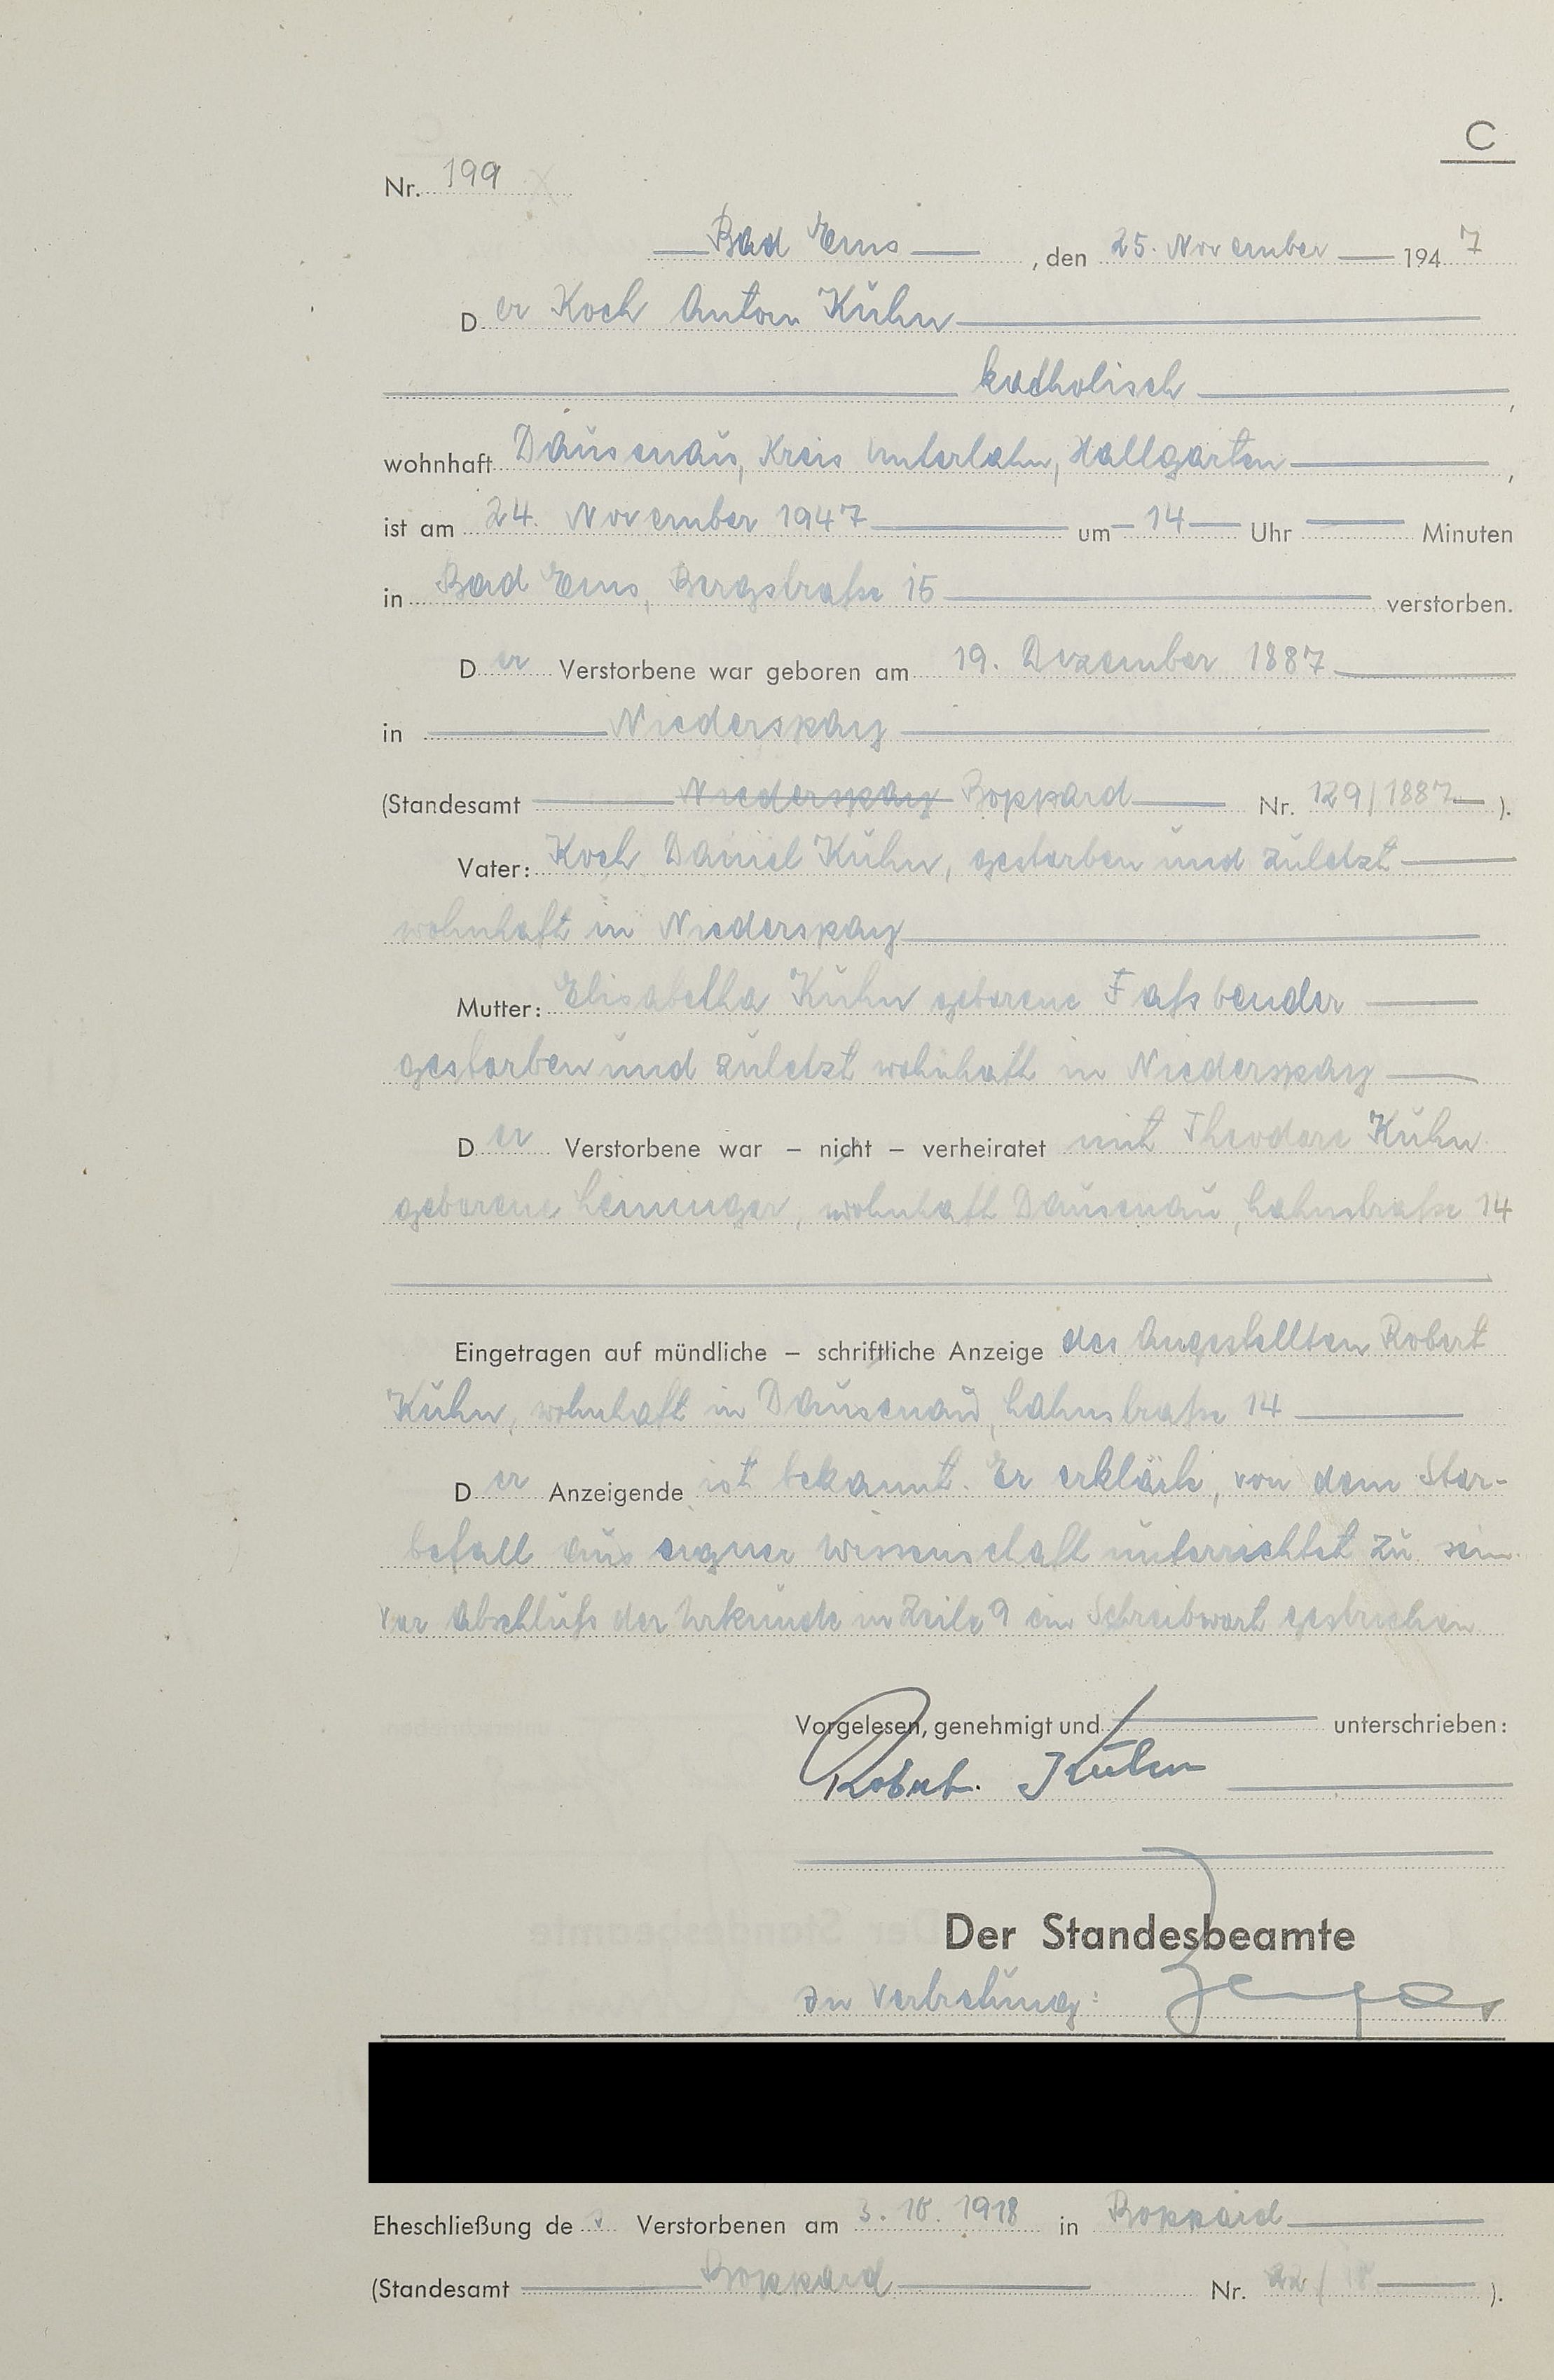 C
Nr. 199
Bad Ems, den 25. November 1947
Der Koch Anton Kühn
katholisch,
wohnhaft Dausenau, Kreis Unterlahn, Hallgarten,
ist am 24. November 1947 um 14 Uhr Minuten
in Bad Ems, Bergstraße 15 verstorben.
Der Verstorbene war geboren am 19. Dezember 1887
in Niederspay
(Standesamt Niederspay Boppard Nr. 129/1887).
Vater: Koch Daniel Kühn, gestorben und zuletzt
wohnhaft in Niederspay
Mutter: Elisabetha Kühn geborene Faßbender
gestorben und zuletzt wohnhaft in Niederspay
Der Verstorbene war – nicht – verheiratet mit Theodore Kühn
geborene Leininger, wohnhaft Dausenau, Lahnstraße 14
Eingetragen auf mündliche – schriftliche Anzeige des Angestellten Robert
Kühn, wohnhaft in Dausenau, Lahnstraße 14
Der Anzeigende ist bekannt. Er erklärte, von dem Ster-
befall aus eigner Wissenschaft unterrichtet zu sein.
Vor Abschluß der Urkunde in Zeile 9 ein Schreibwort gestrichen
Vorgelesen, genehmigt und unterschrieben:
Robert Kühn
Der Standesbeamte
In Vertretung:
Eheschließung de r Verstorbenen am 3. 10. 1918 in Boppard
(Standesamt Boppard Nr. 22/18).